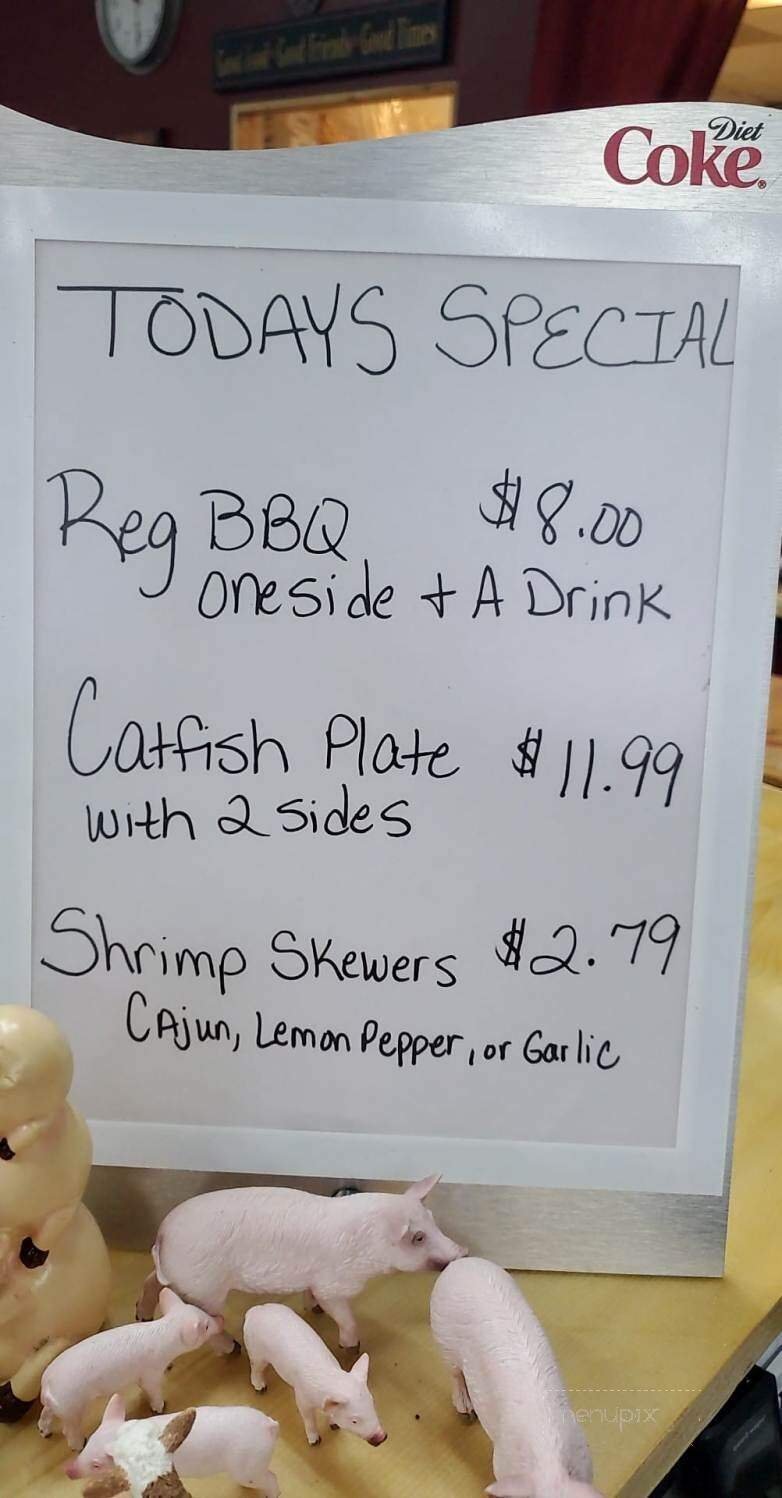 Good Food - Good Friends - Good Times
Diet
Coke
TODAYS SPECIAL
Reg BBQ $8.00
one side + A Drink
Catfish Plate $11.99
with 2 sides
Shrimp Skewers $2.79
CAjun, Lemon Pepper, or Garlic
menupix